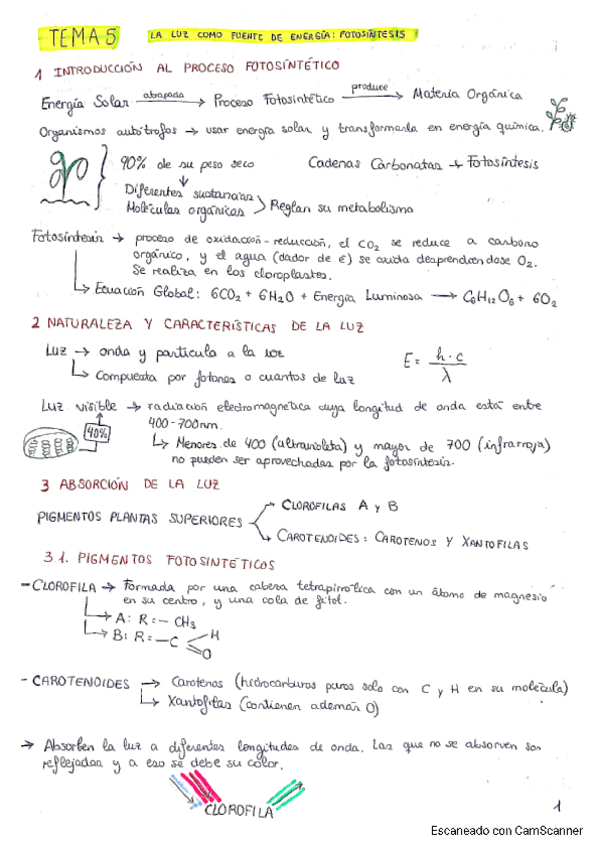 TEMA 5 LA LUZ COMO FUENTE DE ENERGÍA: FOTOSÍNTESIS
1 INTRODUCCIÓN AL PROCESO FOTOSINTÉTICO
Energía Solar atrapada → Proceso Fotosintético produce → Materia Orgánica
Organismos autótrofos → usar energía solar y transformarla en energía química.
90% de su peso seco Cadenas Carbonatas → Fotosíntesis
Diferentes sustancias
Moléculas orgánicas > Reglan su metabolismo
Fotosíntesis → proceso de oxidación-reducción, el CO2 se reduce a carbono
orgánico, y el agua (dador de é) se oxida desprendiendose O2.
Se realiza en los cloroplastos.
↳ Ecuación Global: 6CO2 + 6H2O + Energía Luminosa → C6H12O6 + 6O2
2 NATURALEZA Y CARACTERÍSTICAS DE LA LUZ
Luz → onda y partícula a la vez E = h·c / λ
↳ Compuesta por fotones o cuantos de luz
Luz visible → radiación electromagnética cuya longitud de onda está entre
40% 400-700nm.
↳ Menores de 400 (ultravioleta) y mayor de 700 (infrarroja)
no pueden ser aprovechadas por la fotosíntesis.
3 ABSORCIÓN DE LA LUZ
CLOROFILAS A y B
PIGMENTOS PLANTAS SUPERIORES
CAROTENOIDES: CAROTENOS Y XANTOFILAS
3.1. PIGMENTOS FOTOSINTÉTICOS
- CLOROFILA → Formada por una cabeza tetrapirrólica con un átomo de magnesio
en su centro, y una cola de fitol.
↳ A: R = - CH3
↳ B: R = - C H
O
- CAROTENOIDES → Carotenos (hidrocarburos puros solo con C y H en su molécula)
↳ Xantofilas (contienen además O)
→ Absorben la luz a diferentes longitudes de onda. Las que no se absorven son
reflejadas y a eso se debe su color.
CLOROFILA
1
Escaneado con CamScanner